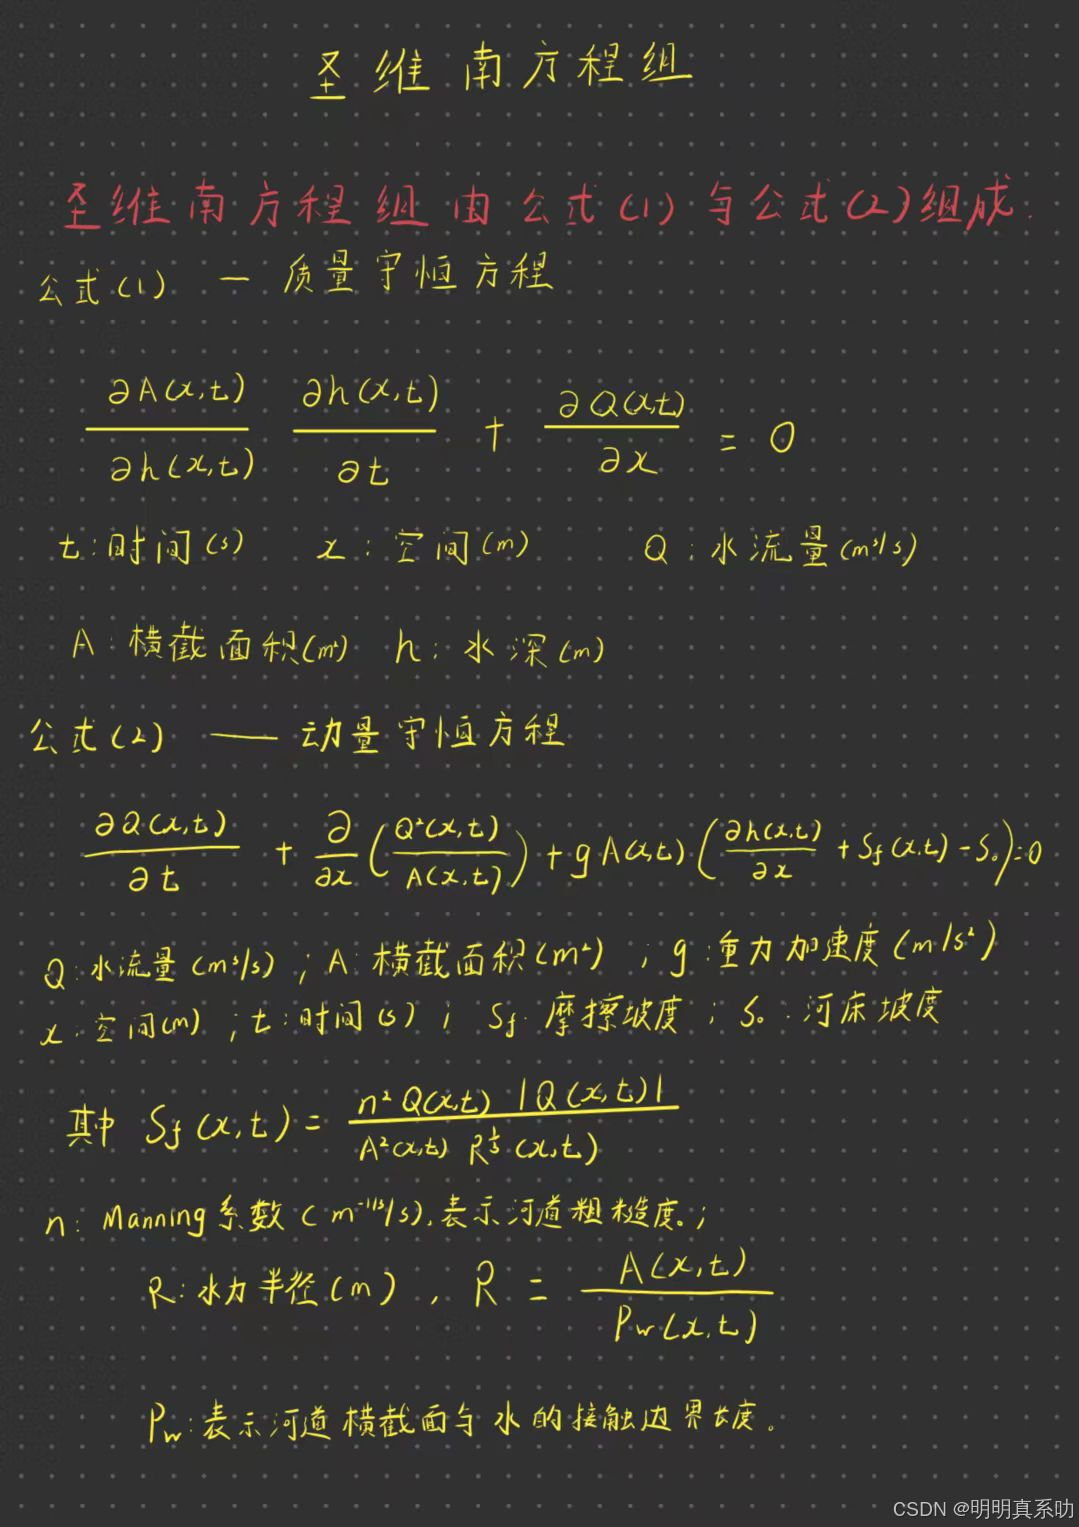 圣维南方程组
圣维南方程组由公式(1)与公式(2)组成.
公式(1) — 质量守恒方程
∂A(x,t)/∂h(x,t) ∂h(x,t)/∂t + ∂Q(x,t)/∂x = 0
t:时间(s) x:空间(m) Q:水流量(m³/s)
A:横截面积(m²) h:水深(m)
公式(2) —— 动量守恒方程
∂Q(x,t)/∂t + ∂/∂x (Q²(x,t)/A(x,t)) + gA(x,t) (∂h(x,t)/∂x + Sf(x,t) - S₀) = 0
Q:水流量(m³/s) ; A:横截面积(m²) ; g:重力加速度(m/s²)
x:空间(m) ; t:时间(s) ; Sf:摩擦坡度 ; S₀:河床坡度
其中 Sf(x,t) = n²Q(x,t) |Q(x,t)| / A²(x,t) R^⅓(x,t)
n: Manning系数(m^-1/3/s),表示河道粗糙度。;
R:水力半径(m) , R = A(x,t)/Pw(x,t)
Pw:表示河道横截面与水的接触边界长度。
CSDN @明明真系叻